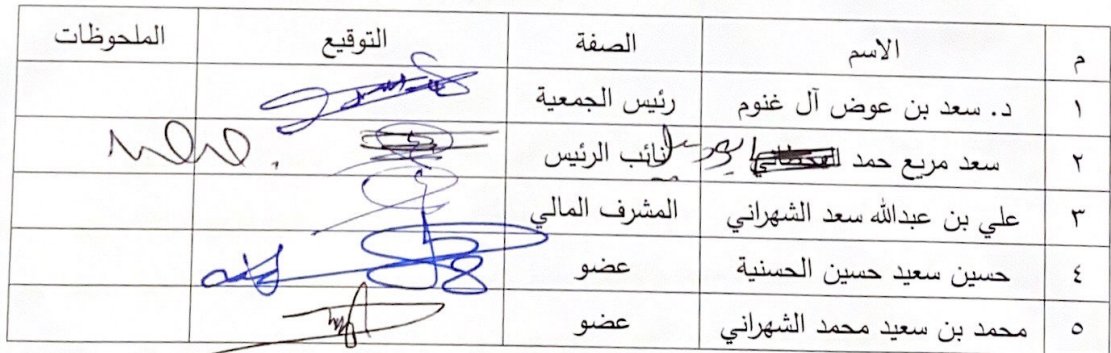 م الاسم الصفة التوقيع الملحوظات
١ د. سعد بن عوض آل غنوم رئيس الجمعية
٢ سعد مريع حمد نائب الرئيس
٣ علي بن عبدالله سعد الشهراني المشرف المالي
٤ حسين سعيد حسين الحسنية عضو
٥ محمد بن سعيد محمد الشهراني عضو